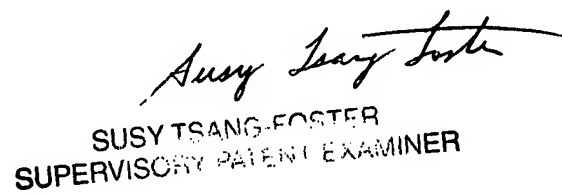 Susy Tsang Foster
SUSY TSANG-FOSTER
SUPERVISORY PATENT EXAMINER